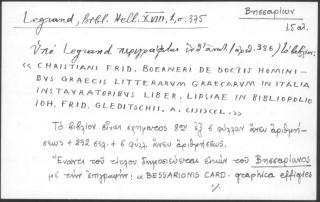 Legrand, Bibl. Hell. XVIII, 1, σ. 375
Βησσαρίων
15 αἰ.
Ὑπὸ Legrand περιγράφεται ὑπ' ἀριθ. (386) τὸ βιβλίον:
« CHRISTIANI FRID. BOERNERI DE DOCTIS HOMINI-
BVS GRAECIS LITTERARVM GRAECARVM IN ITALIA
INSTAVRATORIBVS LIBER. LIPSIAE IN BIBLIOPOLIO
IOH. FRID. GLEDITSCHII. A.
Τὸ βιβλίον εἶναι σχήματος 8ον ἐξ 6 φύλλων ἄνευ ἀριθμή-
σεως + 292 σελ. + 6 φύλλ. ἄνευ ἀριθμήσεως.
Ἔναντι τοῦ τίτλου δημοσιεύεται εἰκὼν τοῦ Βησσαρίωνος
μὲ τὴν ἐπιγραφήν: « BESSARIONIS CARD. graphica effigies
./.